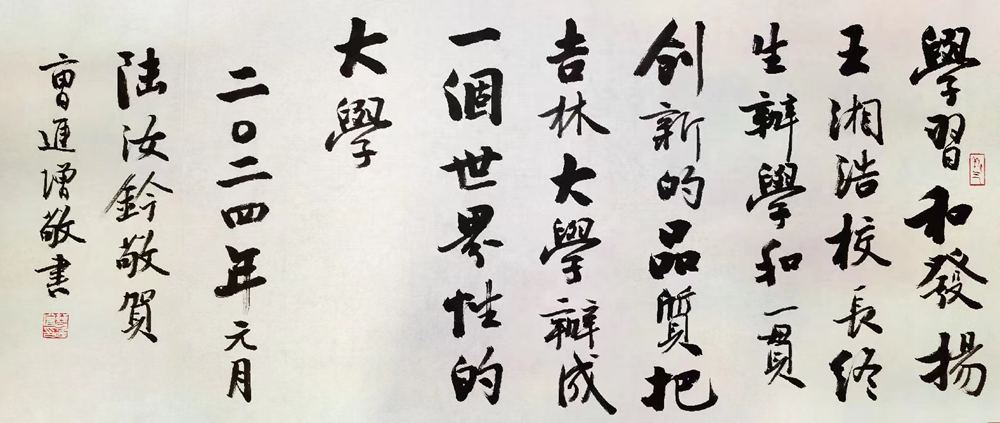 學習和發揚
王湘浩校長終
生辦學和一貫
創新的品質把
吉林大學辦成
一個世界性的
大學
二〇二四年元月
陸汝鈐敬賀
曹進增敬書